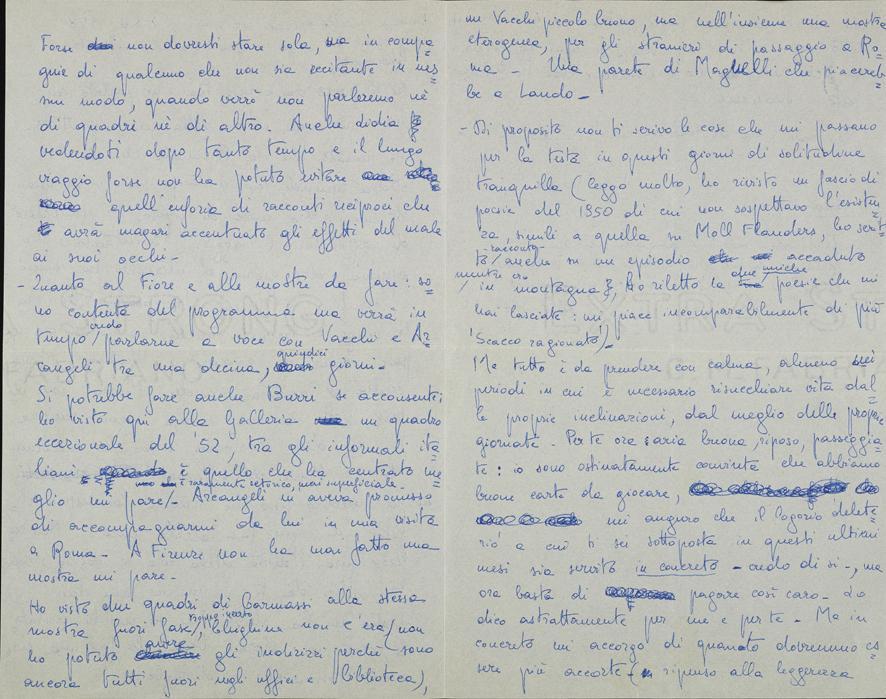 Forse non dovresti stare sola, ma in compa
gnie di qualcuno che non sia eccitante in nes
sun modo, quando verrò non parleremo nè
di quadri nè di altro. Anche didia
vedendoti dopo tanto tempo e il lungo
viaggio forse non ha potuto evitare
quell'euforia di racconti reciproci che
avrà magari accentuato gli effetti del male
ai suoi occhi -
- Quanto al Fiore e alle mostre da fare: so
no contenta del programma ma verrà in
tempo / credo parlarne a voce con Vacchi e Ar
cangeli tra una decina, quindici giorni -
Si potrebbe fare anche Burri se acconsenti:
ho visto qui alla Galleria un quadro
eccezionale del '52, tra gli informali ita
liani è quello che ha centrato me
è raramente retorico, mai superficiale -
glio mi pare / - Arcangeli mi aveva promesso
di accompagnarmi da lui in una visita
a Roma - A Firenze non ha mai fatto una
mostra mi pare -
Ho visto due quadri di Barmassi alla stessa
mostra fuori fase /, Clughine non c'era / non
ho potuto avere gli indirizzi perché sono
ancora tutti fuori negli uffici e biblioteca),
un Vacchi piccolo buono, ma nell'insieme una mostra
eterogenea, per gli stranieri di passaggio a Ro
ma - Una parete di Magnelli che piacereb
be a Lando -
- Di proposito non ti scrivo le cose che mi passano
per la testa in questi giorni di solitudine
tranquilla (leggo molto, ho rivisto un fascio di
poesie del 1950 di cui non sospettavo l'esisten
za, simili a quella su Moll Flanders, ho scrit
to / racconto anche su un episodio accaduto
mentre ero
/ in montagna, ho riletto le due uniche poesie che mi
hai lasciate: mi piace incomparabilmente di più
'Scacco ragionato') -
Ma tutto è da prendere con calma, almeno nei
periodi in cui è necessario risucchiare vita dal
le proprie inclinazioni, dal meglio delle proprie
giornate - Per te ora aria buona, riposo, passeggia
te: io sono ostinatamente convinta che abbiamo
buone carte da giocare,
mi auguro che il logorio delete
rio a cui ti sei sottoposta in questi ultimi
mesi sia servito in concreto - credo di sì -, ma
ora basta di pagare così caro - Lo
dico astrattamente per me e per te - Ma in
concreto mi accorgo di quanto dovremmo es
sere più accorte (ripenso alla leggerezza